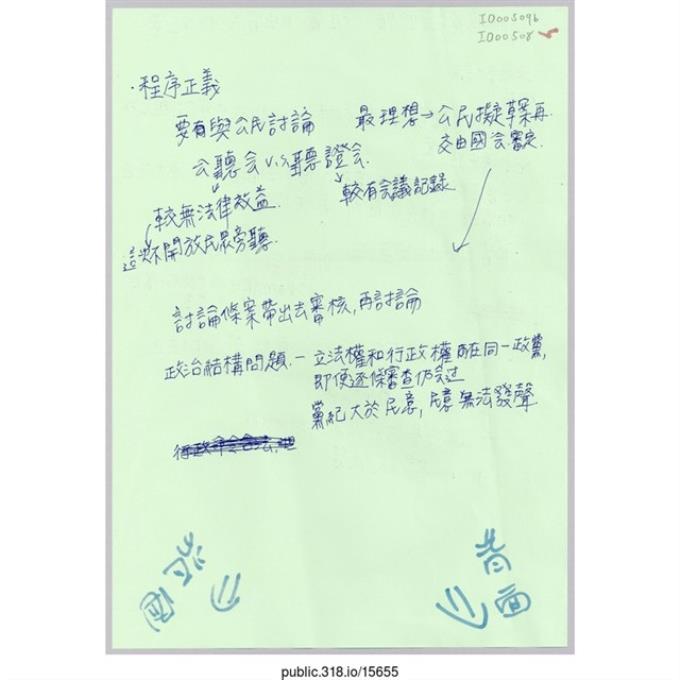 ID005096
ID00508
·程序正義
要有與公民討論
最理想→公民擬草案再
交由國会審定
公聽会v.s聽證会
較有会議記錄
較無法律效益
不開放民眾旁聽
討論條案帶出去審核,再討論
政治結構問題.—立法權和行政權 在同一政黨,
即便逐條審查仍会过
黨紀大於民意,民意無法發聲
背面
背面
public.318.io/15655